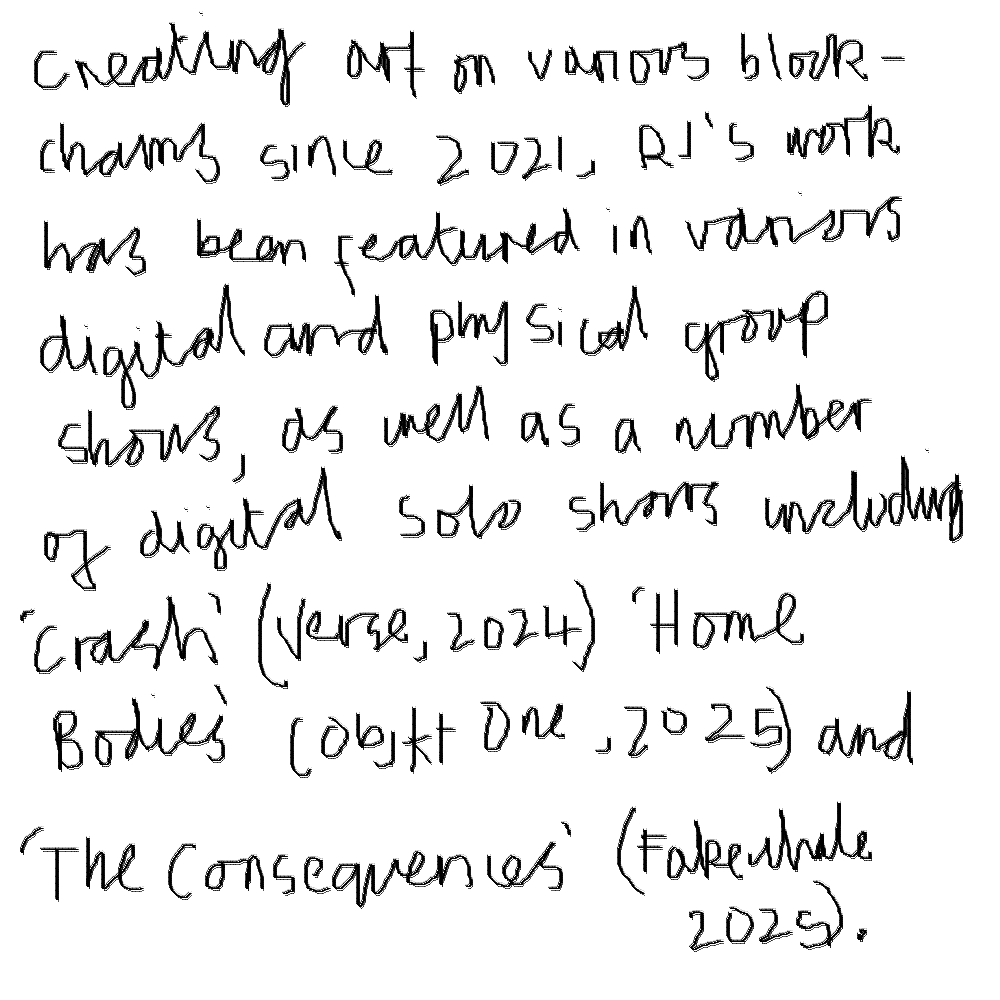 creating art on various block-
chains since 2021, RJ's work
has been featured in various
digital and physical group
shows, as well as a number
of digital solo shows including
'Crash' (Verse, 2024) 'Home
Bodies' (Objkt One, 2025) and
'The Consequences' (Fakewhale
2025).